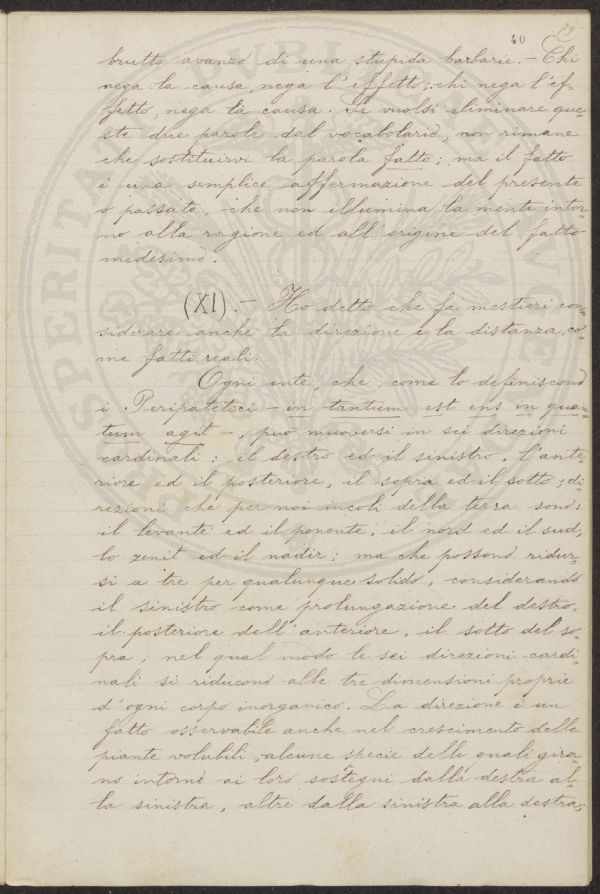 40
brutto avanzo di una stupida barbarie. – Chi
nega la causa, nega l'effetto; chi nega l'ef-
fetto, nega la causa. Se vuolsi eliminare que-
ste due parole dal vocabolario, non rimane
che sostituirvi la parola fatto; ma il fatto
è una semplice affermazione del presente
o passato, che non illumina la mente intor-
no alla ragione ed all'origine del fatto
medesimo.
(XI). – Ho detto che fa mestieri con-
siderare anche la direzione e la distanza, co-
me fatti reali.
Ogni ente, che, come lo definiscono
i Peripatetici – in tantum est ens in quan-
tum agit –, può muoversi in sei direzioni
cardinali: il destro ed il sinistro, l'ante-
riore ed il posteriore, il sopra ed il sotto; di-
rezioni che per noi incoli della terra sono:
il levante ed il ponente, il nord ed il sud,
lo zenit ed il nadir; ma che possono ridur-
si a tre per qualunque solido, considerando
il sinistro come prolungazione del destro,
il posteriore dell'anteriore, il sotto del so-
pra; nel qual modo le sei direzioni cardi-
nali si riducono alle tre dimensioni proprie
d'ogni corpo inorganico. La direzione è un
fatto osservabile anche nel crescimento delle
piante volubili, alcune specie delle quali gira-
no intorno ai loro sostegni dalla destra al-
la sinistra, altre dalla sinistra alla destra;